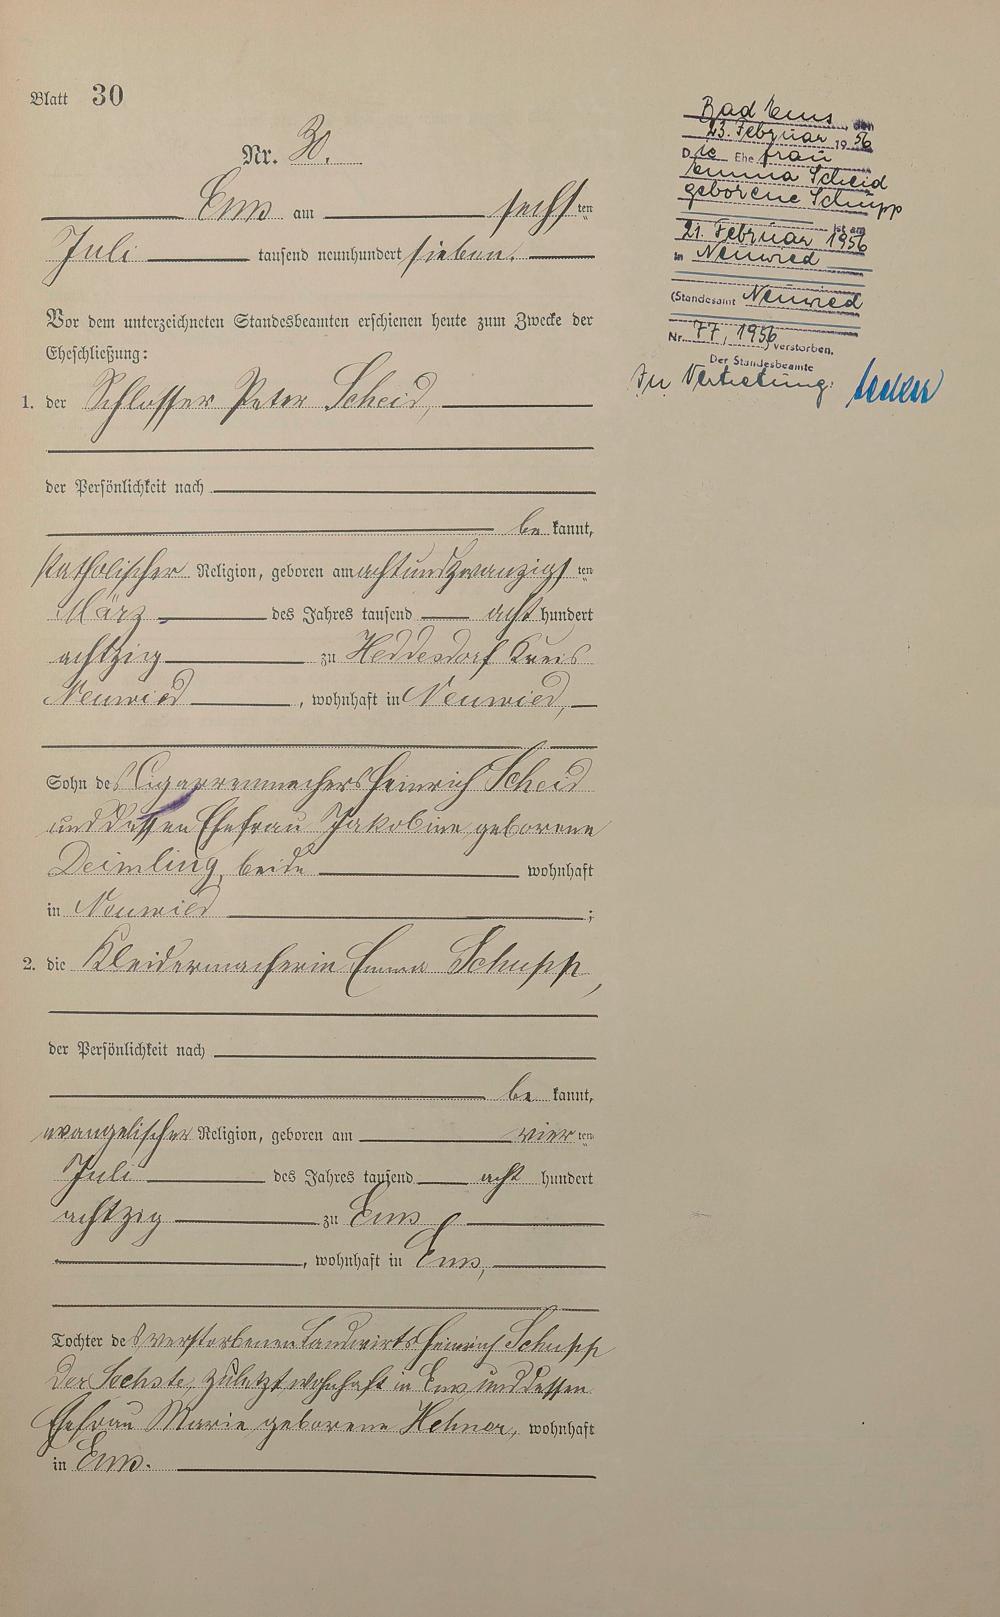 Blatt 30
Nr. 30.
Ems am sechsten
Juli tausend neunhundert sieben.
Vor dem unterzeichneten Standesbeamten erschienen heute zum Zwecke der
Eheschließung:
1. der Schlosser Peter Scheid,
der Persönlichkeit nach
bekannt,
katholischer Religion, geboren am achtundzwanzigsten
März des Jahres tausend acht hundert
achtzig zu Heddesdorf Kreis
Neuwied, wohnhaft in Neuwied,
Sohn des Cigarrenmachers Heinrich Scheid
und dessen Ehefrau Jakobine geborene
Deimling, beide wohnhaft
in Neuwied;
2. die Kleidermacherin Emma Schupp,
der Persönlichkeit nach
bekannt,
evangelischer Religion, geboren am vierten
Juli des Jahres tausend acht hundert
achtzig zu Ems
, wohnhaft in Ems,
Tochter des verstorbenen Landwirts Heinrich Schupp
der Sechste, zuletzt wohnhaft in Ems und dessen
Ehefrau Marie geborene, wohnhaft
in Ems.
Bad Ems, den
23. Februar 1956
Die Ehefrau
Emma Scheid
geborene Schupp
ist am
21. Februar 1956
in Neuwied
(Standesamt Neuwied
Nr. 77, 1956) verstorben.
Der Standesbeamte
In Vertretung: